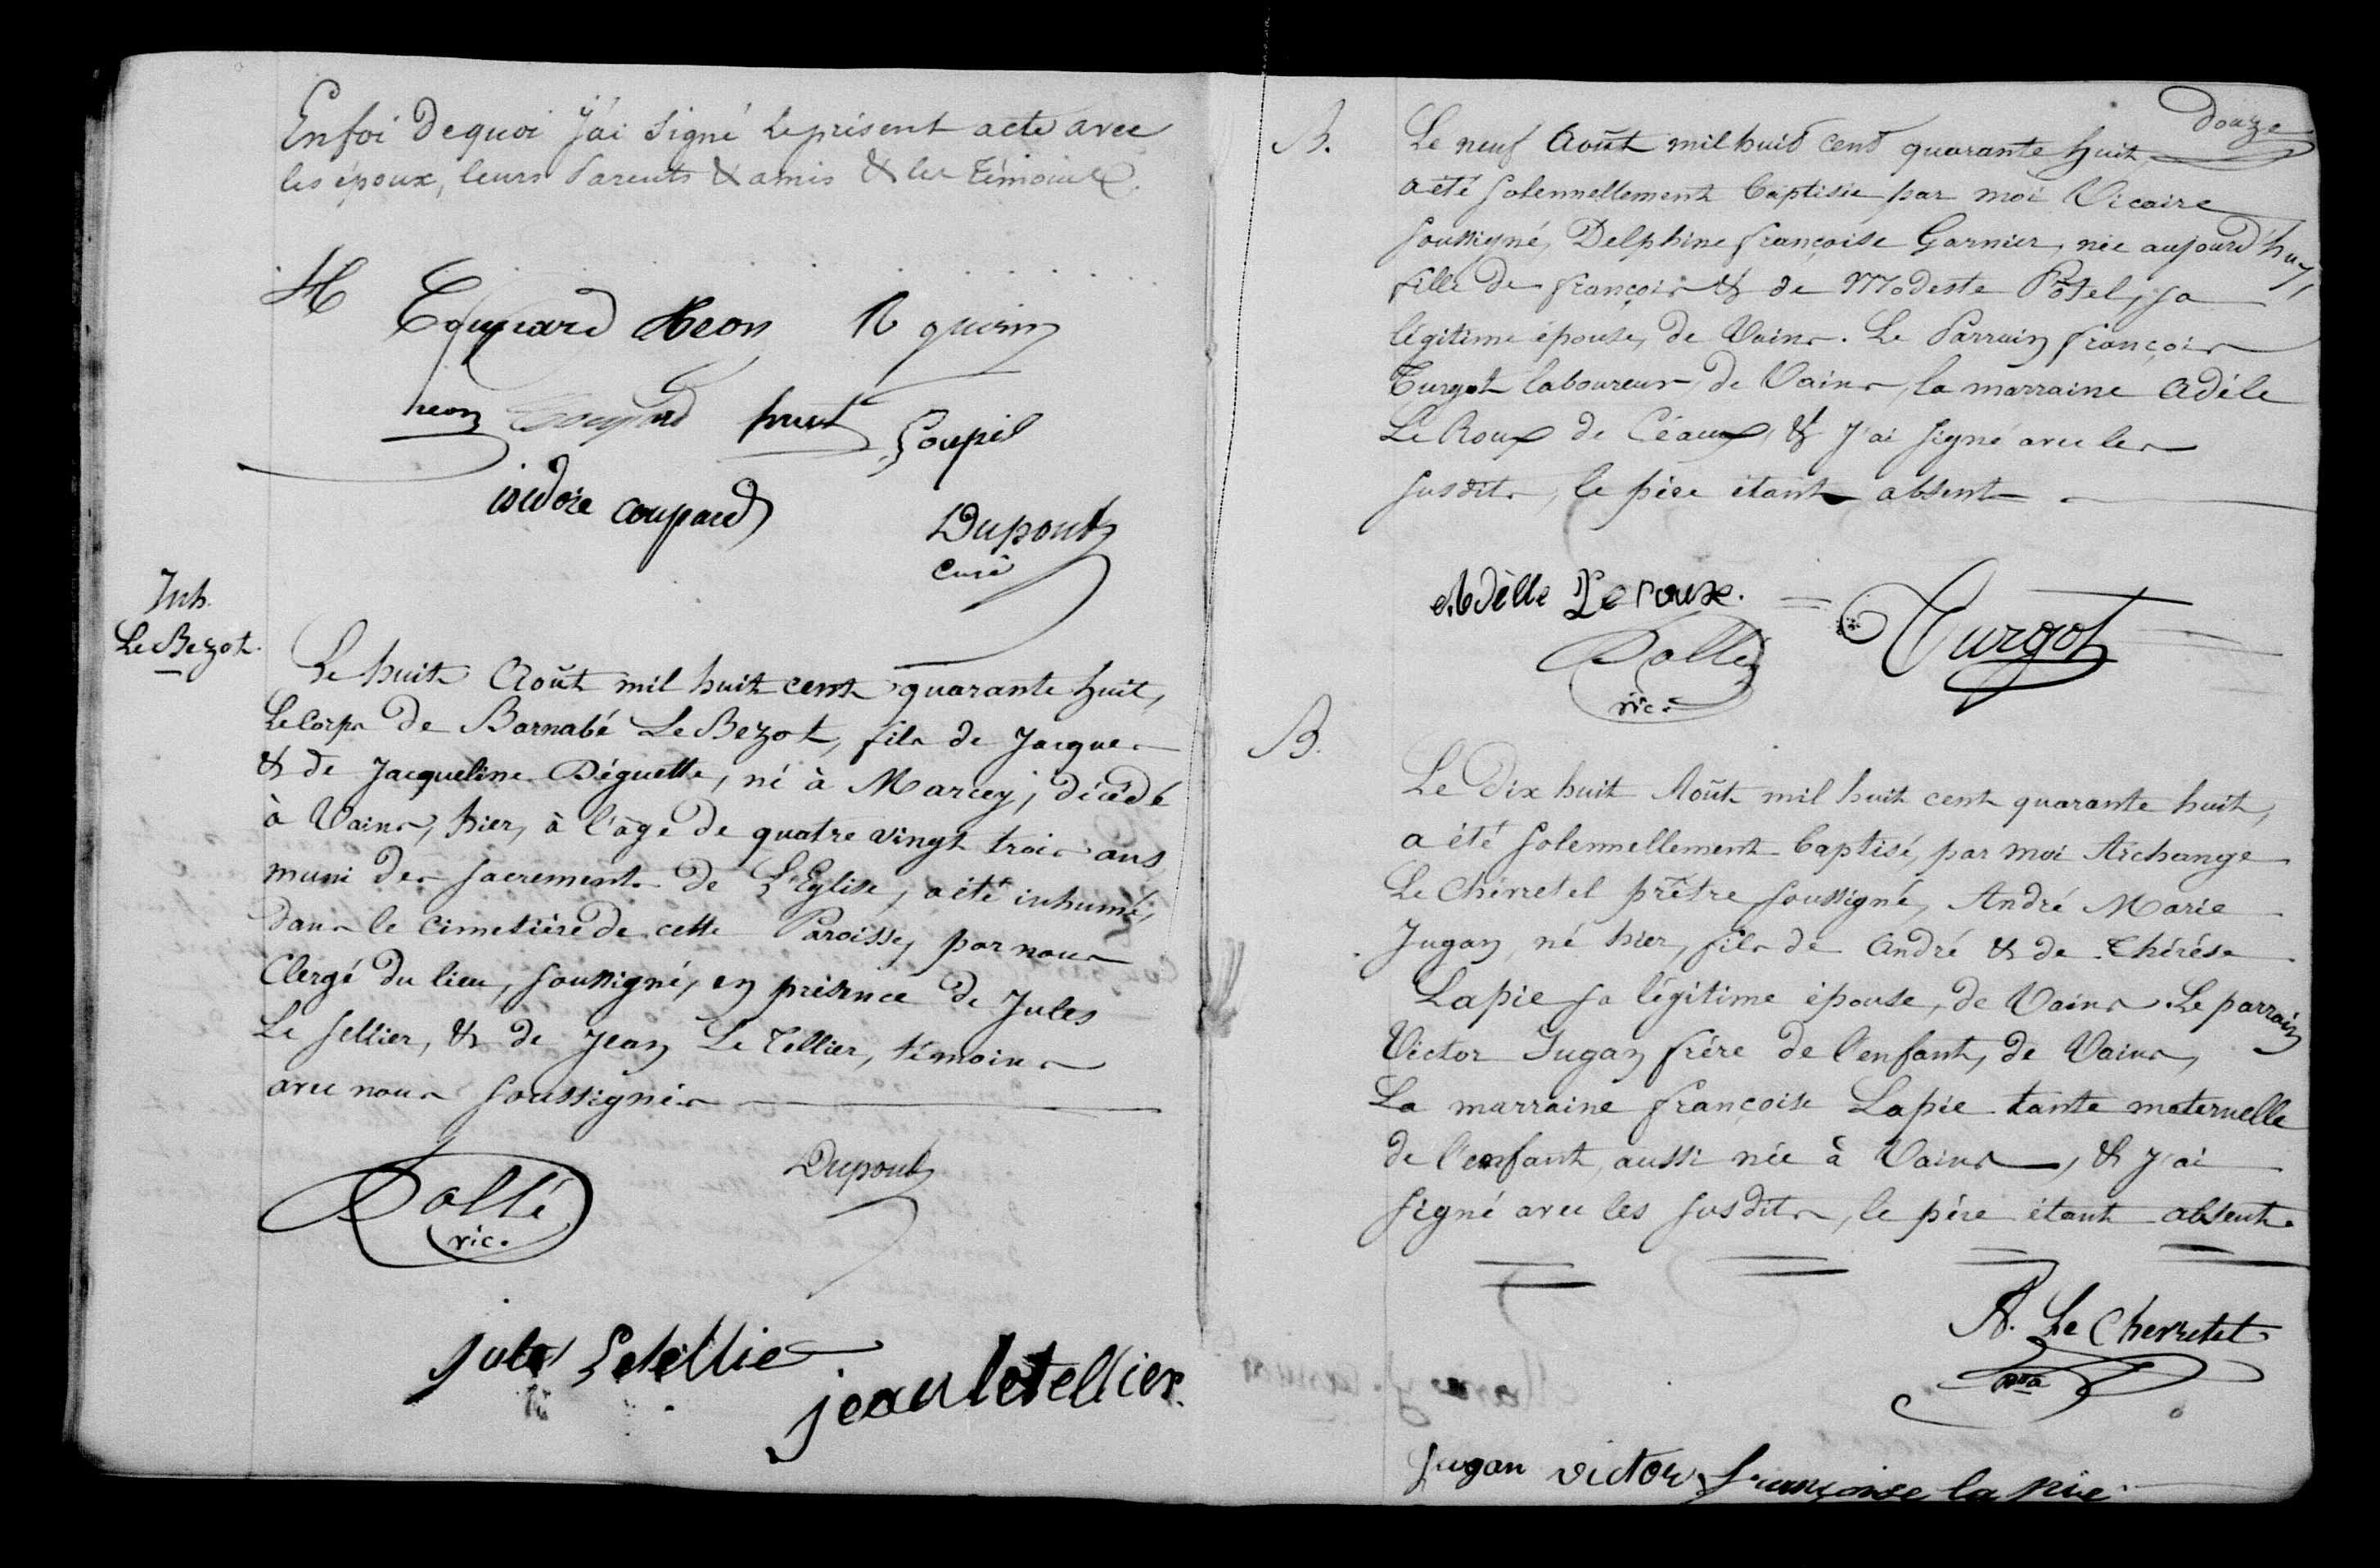 Enfoi dequoi j'ai signé leprésent acte avec
les époux, leurs Parents & amis & les témoins.
heon
Goupil
isidore coupard
Dupont
curé
Inh.
Le Bezot.
Le huit Août mil huit cent quarante huit,
Le Corps de Barnabé Le Bezot, fils de Jacques
& de Jacqueline Déguette, né à Marcey, décédé
à Vains, hier, à l'âge de quatre vingt trois ans,
muni des sacrements de L'Eglise, a été inhumé,
dans le cimetière de cette Paroisse, par nous
Clergé du lieu, soussigné, en présence de Jules
Le sellier, & de Jean Le Tellier, témoins
avec nous soussignés
Dupont
Dallé
vic.
jules Letellier
jean letellier.
douze
B.
Le neuf Août mil huit cent quarante huit,
a été solennellement baptisée par moi Vicaire
soussigné, Delphine françoise Garnier, née aujourd'huy,
fille de françois & de Modeste Potel, sa
légitime épouse, de Vains. Le Parrain françois
Turgot laboureur, de Vains, la marraine Adèle
Le Roux de Céaux, & j'ai signé avec les
susdits, le père étant absent.
Adèlle Le roux.
Turgot
Dallé
vic.
B.
Le Dix huit Août mil huit cent quarante huit,
a été solennellement baptisé, par moi Archange
Le Chérretel prêtre soussigné, André Marie
Jugan, né hier, fils de André & de Thérèse
Lapie sa légitime épouse, de Vains. Le parrain
Victor Jugan frère de l'enfant, de Vains,
La marraine françoise Lapie tante maternelle
de l'enfant, aussi née à Vains, & j'ai
signé avec les susdits, le père étant absent.
A. Le Cherretel
Jugan victor françoise la pie